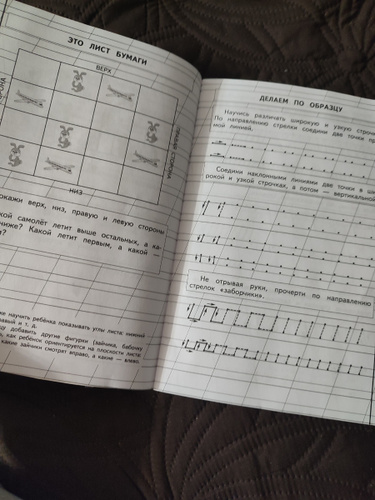 ЭТО ЛИСТ БУМАГИ
ВЕРХ
НИЗ
покажи верх, низ, правую и левую стороны
самолёт летит выше остальных, а ка-
ниже? Какой летит первым, а какой —
научить ребёнка показывать углы листа: нижний
и т. д.
добавить другие фигурки (зайчика, бабочку
как ребёнок ориентируется на плоскости листа:
какие зайчики смотрят вправо, а какие — влево.
ДЕЛАЕМ ПО ОБРАЗЦУ
Научись различать широкую и узкую строчки.
По направлению стрелки соедини две точки пря-
мой линией.
Соедини наклонными линиями две точки в ши-
рокой и узкой строчках, а потом — вертикальной
Не отрывая руки, прочерти по направлению
стрелок «заборчики».